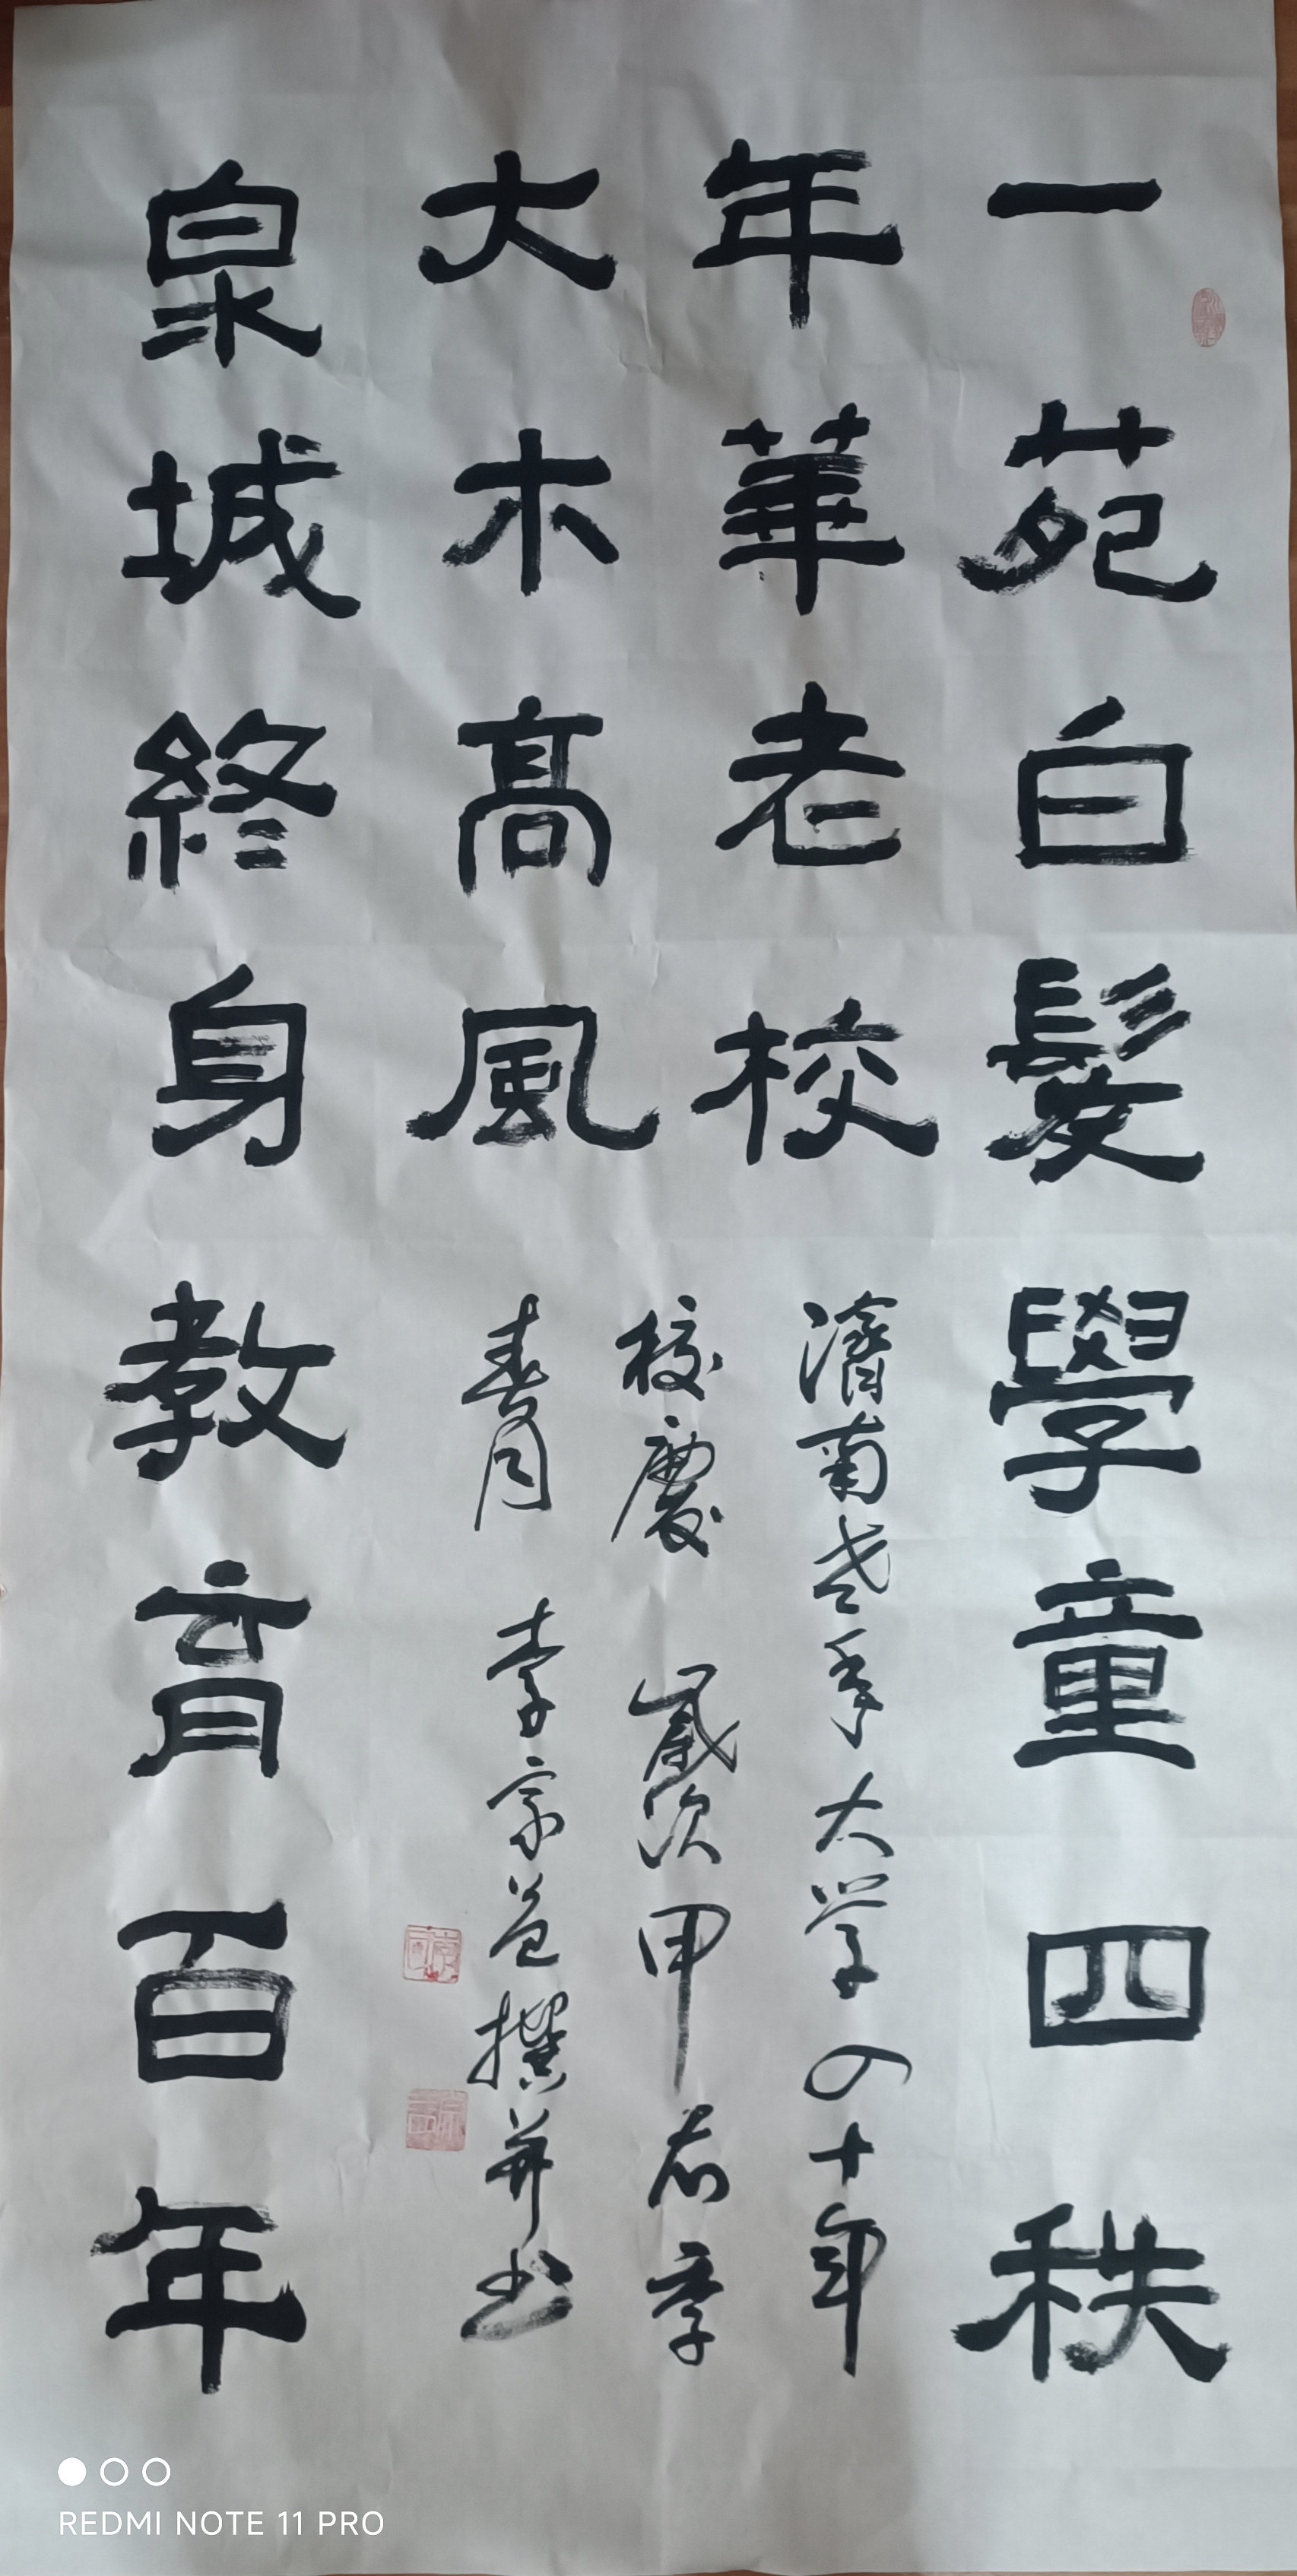 一苑白髮學童四秩
年華老校
大木高風
泉城終身教育百年
濟南老年大学四十年
校慶 歲次甲辰季
春月 李宗益撰并书
REDMI NOTE 11 PRO